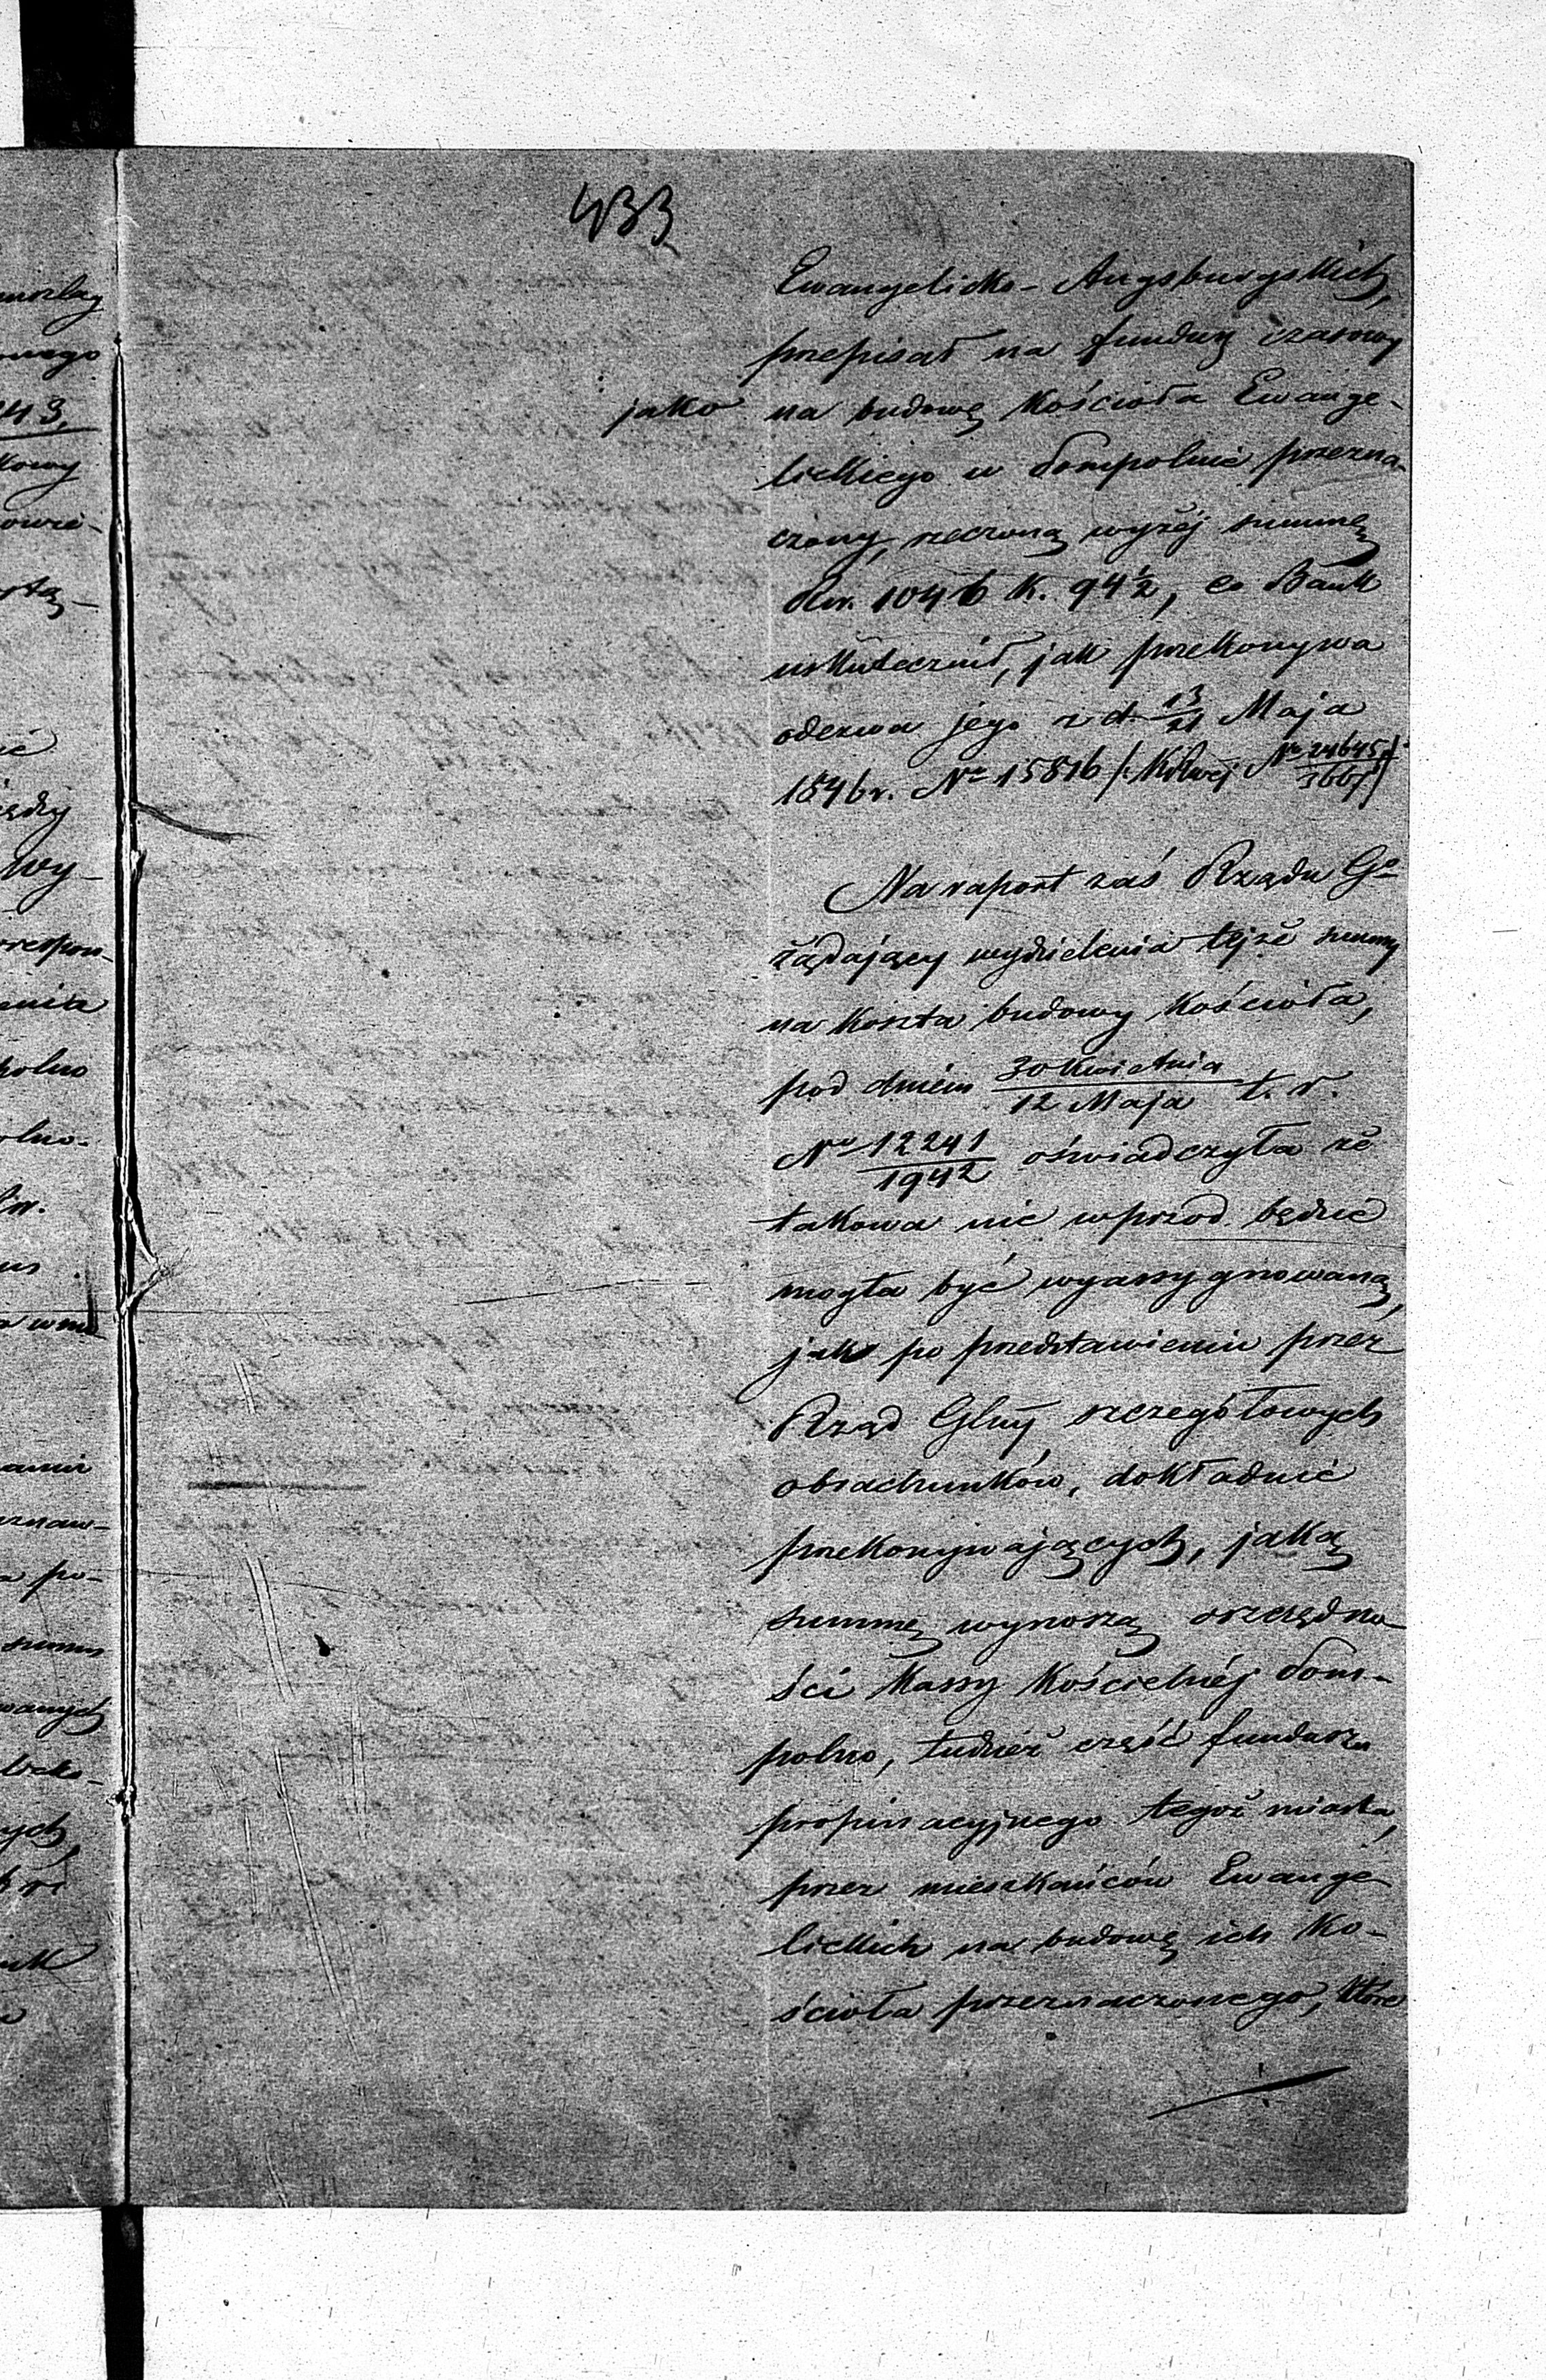 433
Ewangelicko-Augsburgskich,
przepisał na fundusz czasowy
jako na budowę Kościoła Ewange-
lickiego w Sompolnie przezna-
czony, rzeczoną wyżéj summę
Rsr. 1046 k. 94½, co Bank
uskutecznił, jak przekonywa
odezwa jego z d. 13/21 Maja
1846 r. No 15816 /: No 24645/
Na raport zaś Rządu Go
żądający wydzielenia tejże summy
na koszta budowy Kościoła,
pod dniem 30 Kwietnia/12 Maja t. r.
No 12241/1942 oświadczyła że
takowa nie wprzod będzie
mogła być wyassygnowaną,
jak po przedstawieniu przez
Rząd Glny szczegółowych
obrachunków, dokładnie
przekonywających, jaką
summę wynoszą oszczędno-
ści Kassy Kościelnéj Som-
polno, tudzież część funduszu
propinacyjnego tegoż miasta,
przez mieszkańców Ewange-
lickich na budowę ich Ko-
ścioła przeznaczonego, które